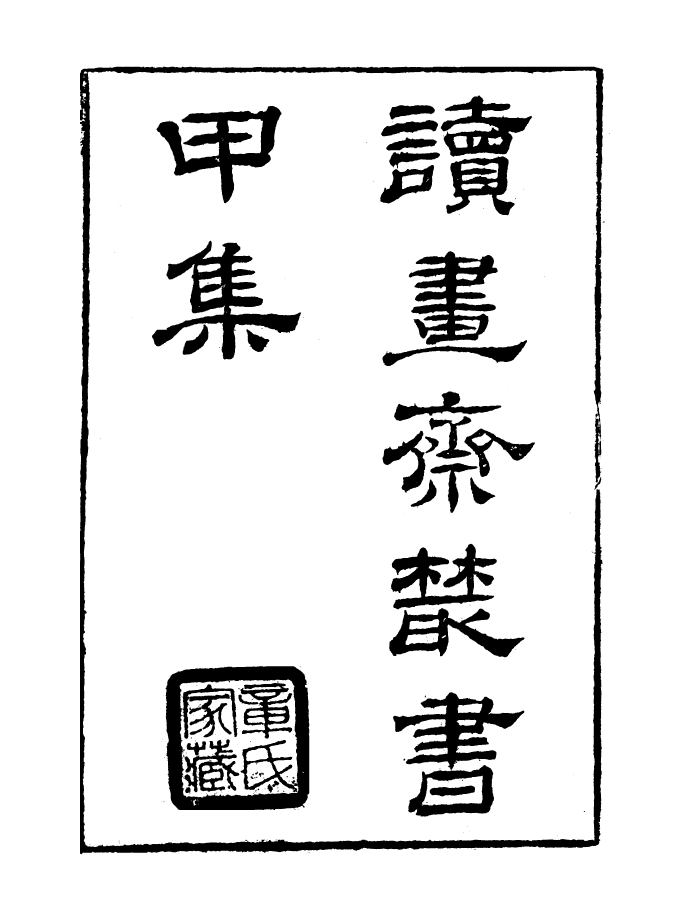 讀畫齋叢書
甲集
章氏
家藏